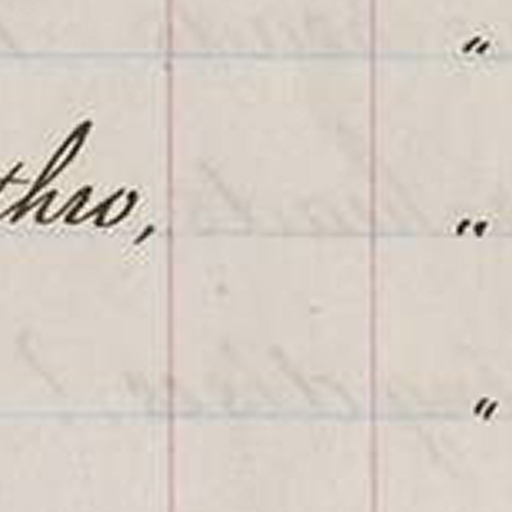 "
thro, "
"